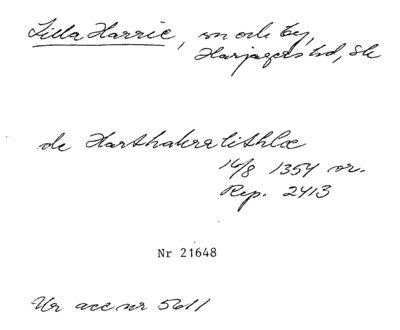 Lilla Harrie, sn och by,
Harjagers hd, Sk
de Harthakralithlæ
16/8 1354 or.
Rep. 2413
Nr 21648
Ur acc nr 5611